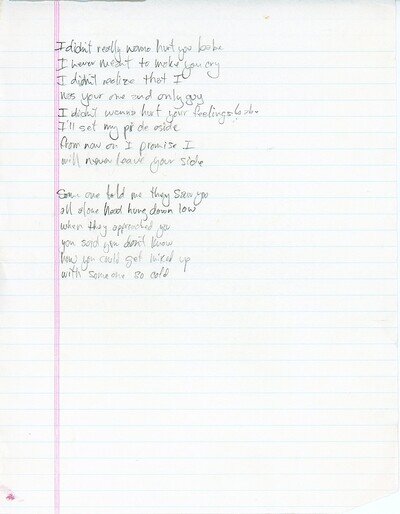 I didn't really wanna hurt you babe
I never meant to make you cry
I didn't realize that I
was your one and only guy
I didn't wanna hurt your feelings babe
I'll set my pride aside
from now on I promise I
will never leave your side
Some one told me they saw you
all alone head hung down low
when they approached you
you said you don't know
how you could get mixed up
with someone so cold